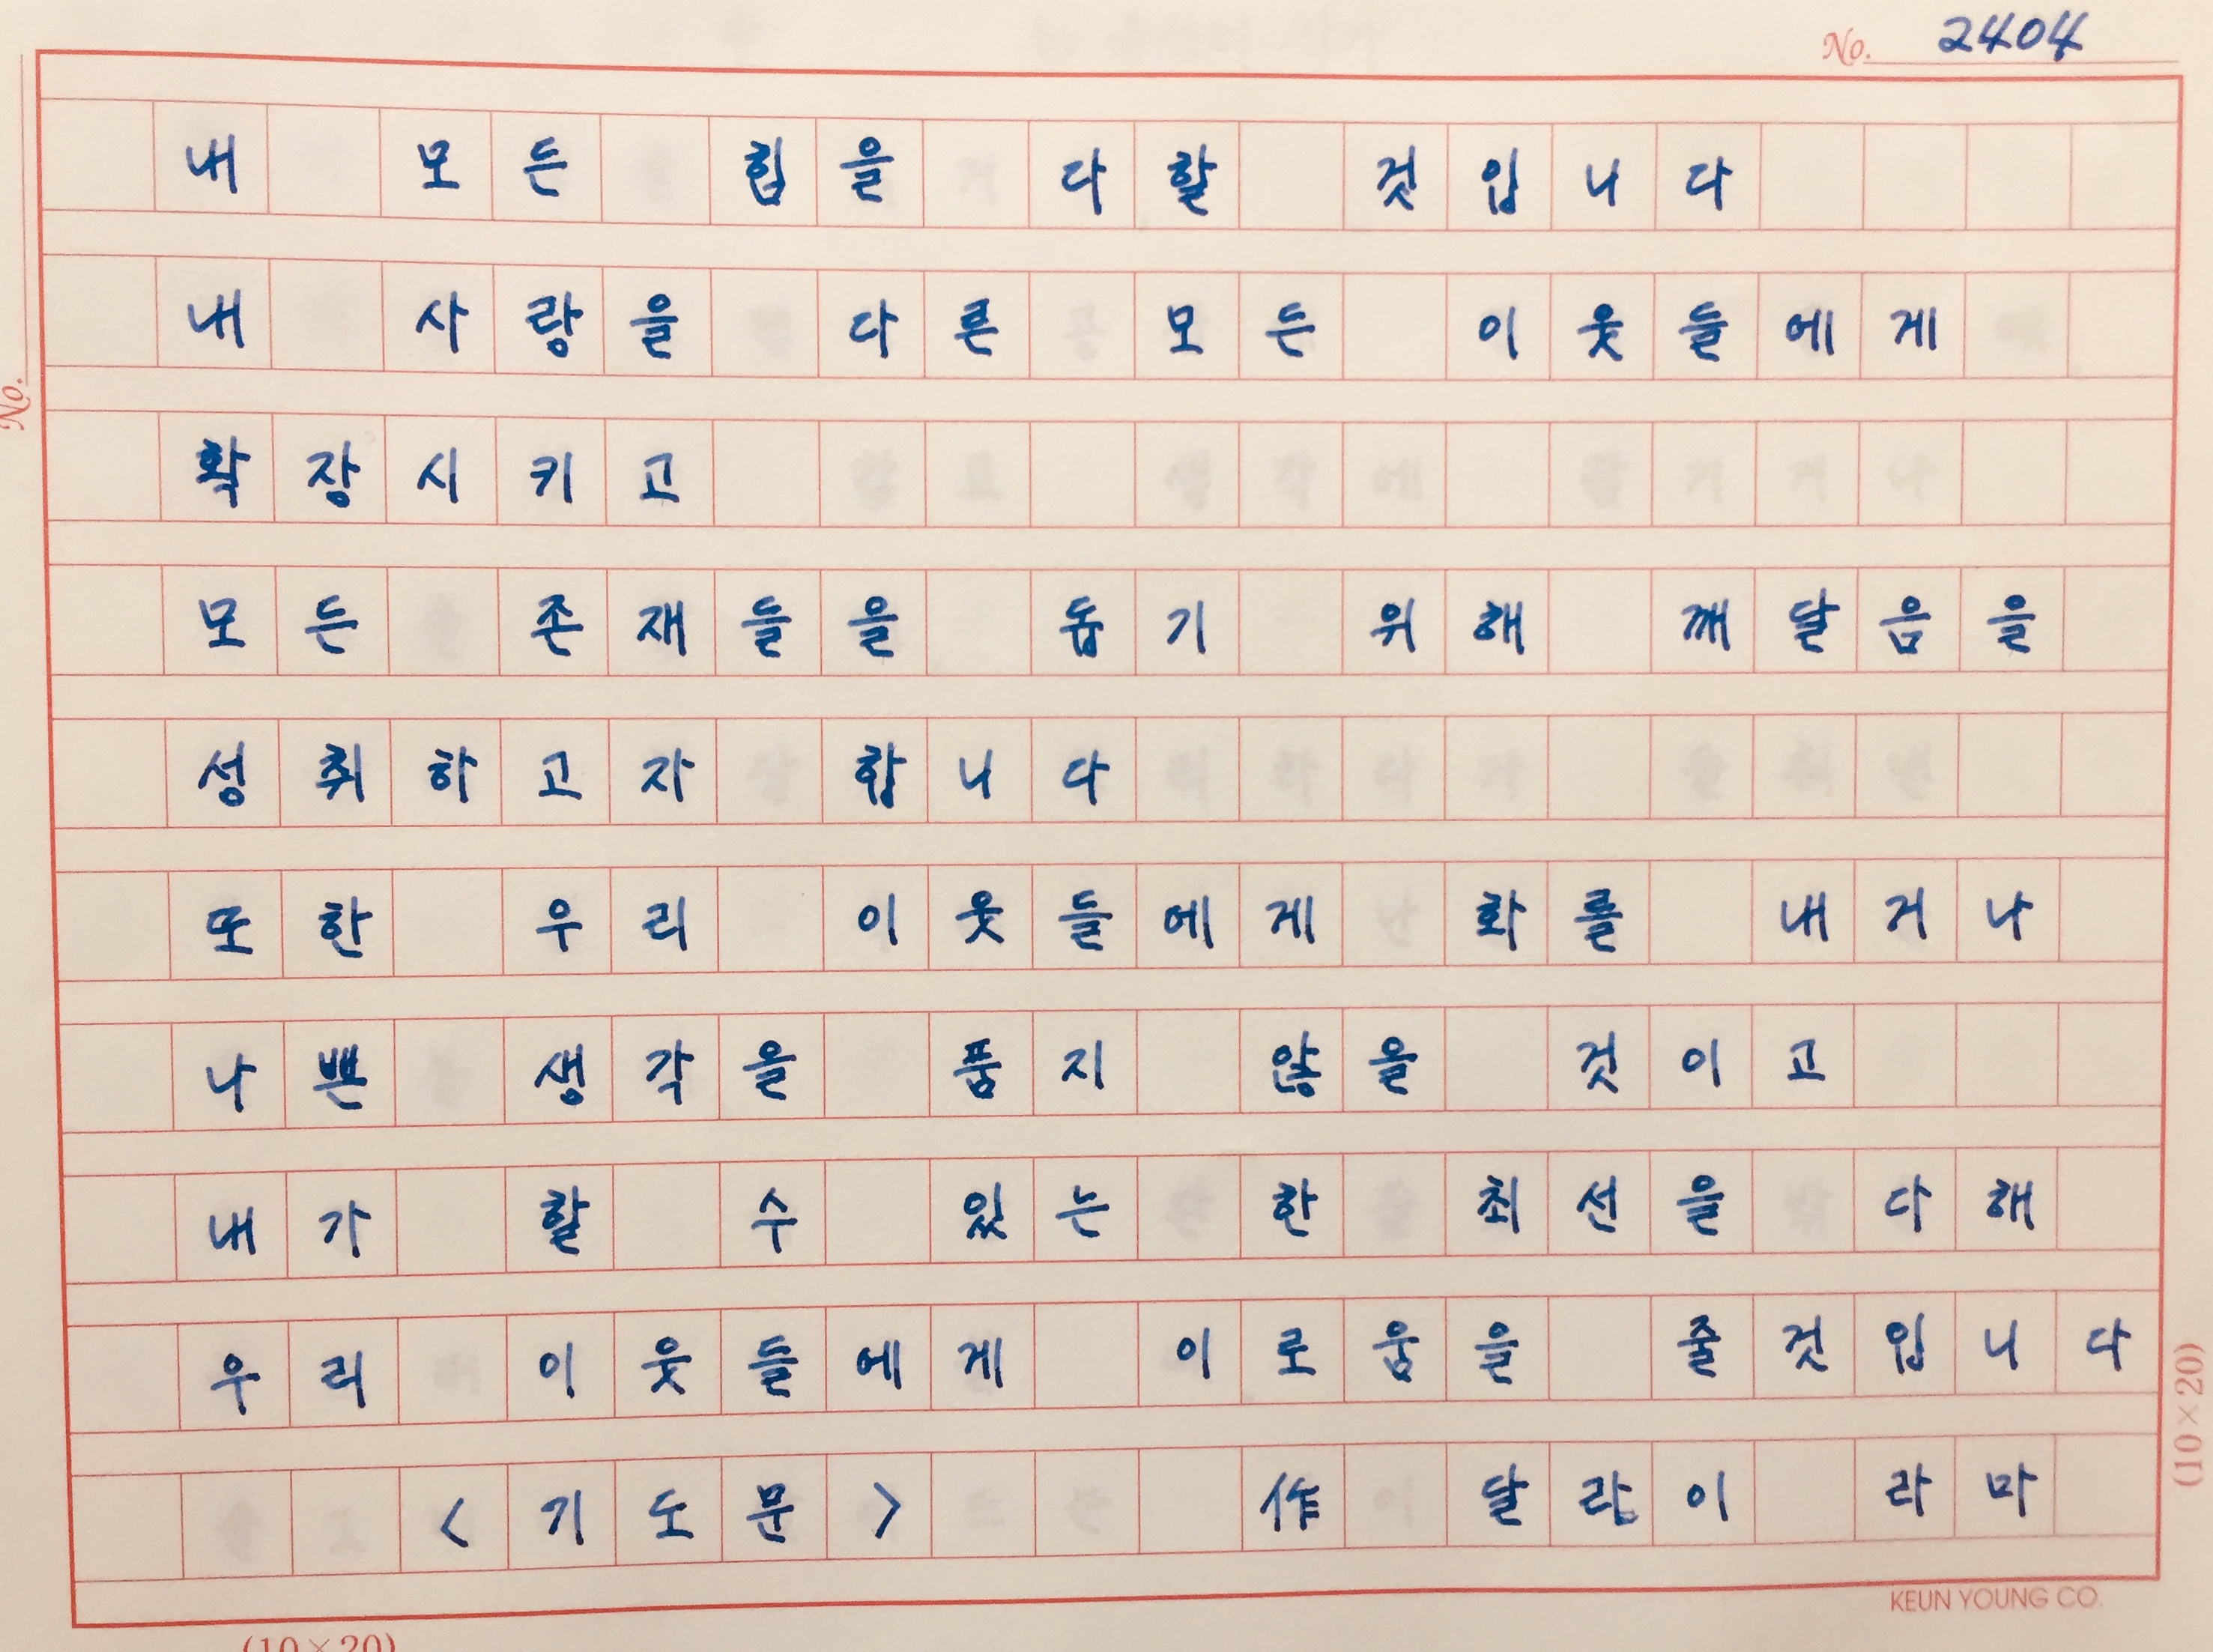 No. 2404
내 모든 힘을 다할 것입니다
내 사랑을 다른 모든 이웃들에게
확장시키고
모든 존재들을 돕기 위해 깨달음을
성취하고자 합니다
또한 우리 이웃들에게 화를 내거나
나쁜 생각을 품지 않을 것이고
내가 할 수 있는 한 최선을 다해
우리 이웃들에게 이로움을 줄것입니다
<기도문> 作 달라이 라마
KEUN YOUNG CO.
(10×20)
No.
(10×20)